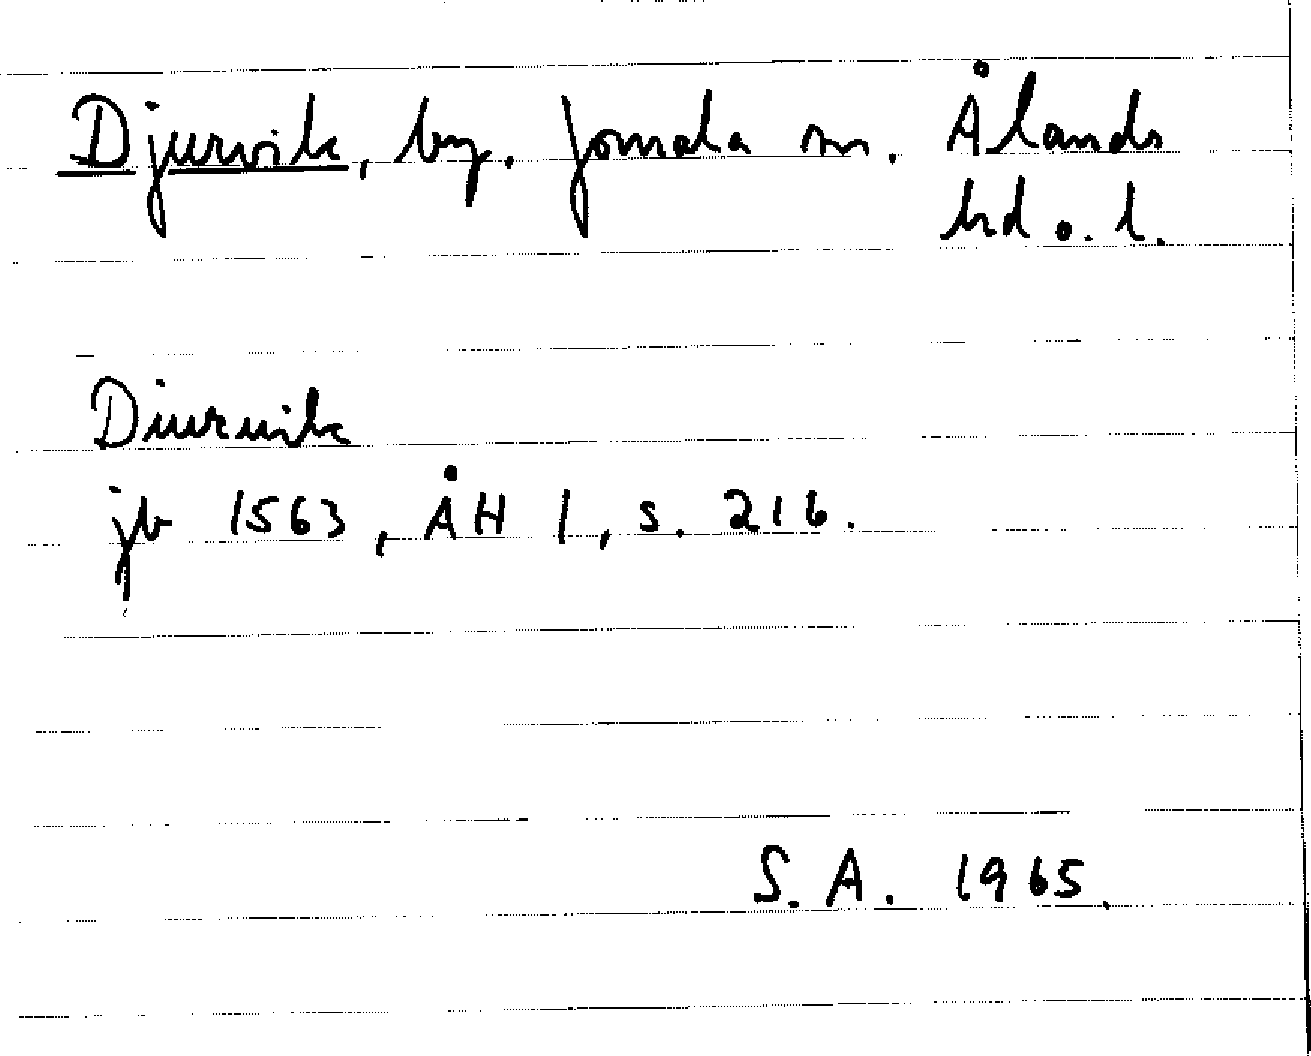 Djurvik, by. Jomala sn. Ålands
hd o. l.
Diuruik
jb 1563, ÅH I, s. 216.
S. A. 1965.